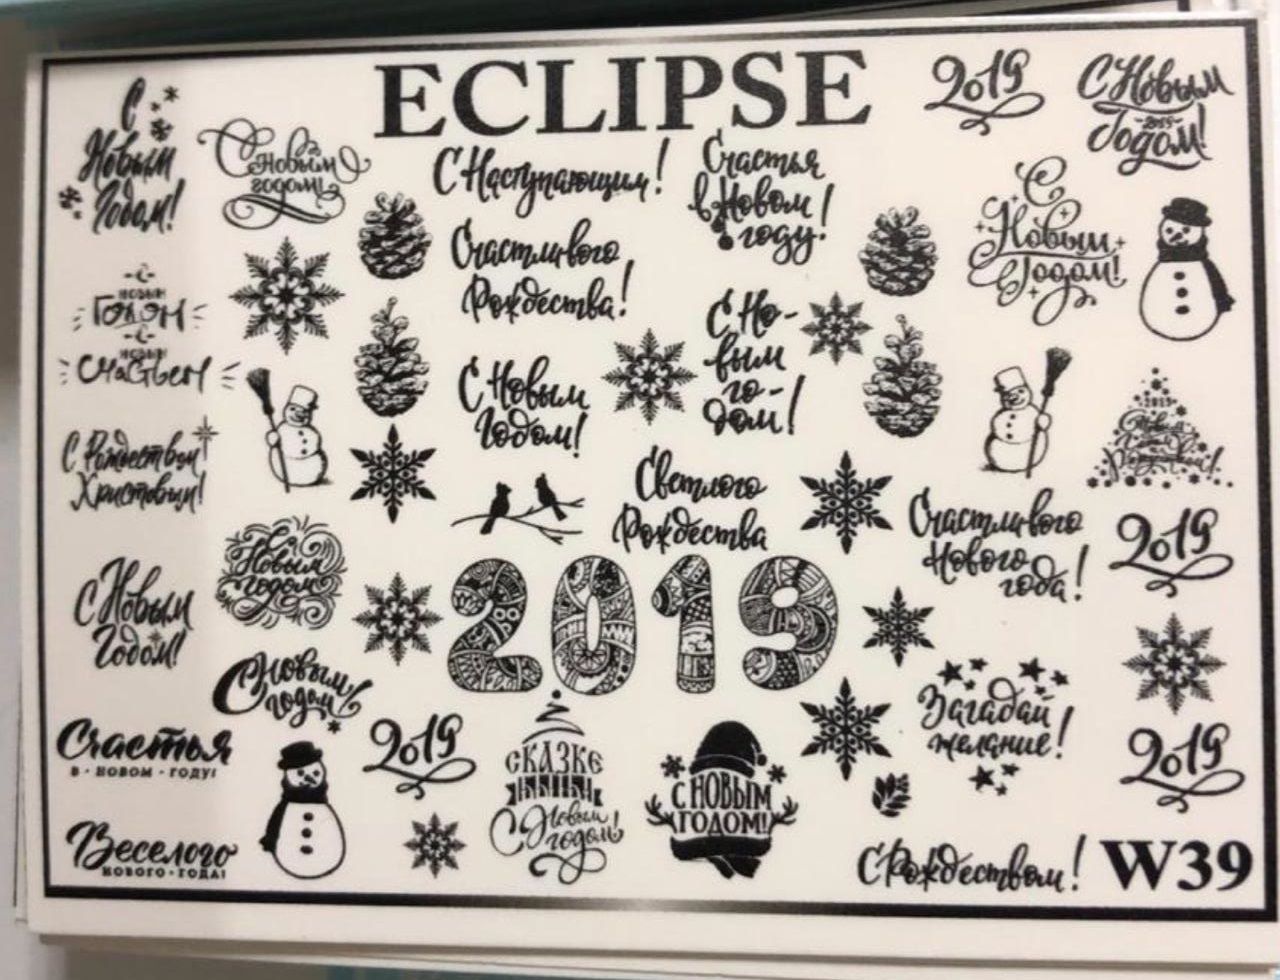 ECLIPSE
2019
С Новым
2019
Годом!
С
Новым
Годом!
С Новым
годом!
С Наступающим!
Счастья
в Новом
году!
С
Новым
Годом!
Счастливого
Рождества!
С
НОВЫМ
ГОДОМ
С
НОВЫМ
СЧАСТЬЕМ
С Но-
вым
го-
дом!
С Новым
Годом!
2019
С Рождеством
Христовым!
Светлого
Рождества
Счастливого
Нового
года!
2019
Новым
годом
С Новым
Годом!
2019
С Новым
годом!
Загадай
желание!
Счастья
В • НОВОМ • ГОДУ!
2019
СКАЗКЕ
С Новым
годом!
С НОВЫМ
ГОДОМ!
2019
Веселого
НОВОГО • ГОДА!
С Рождеством!
W39